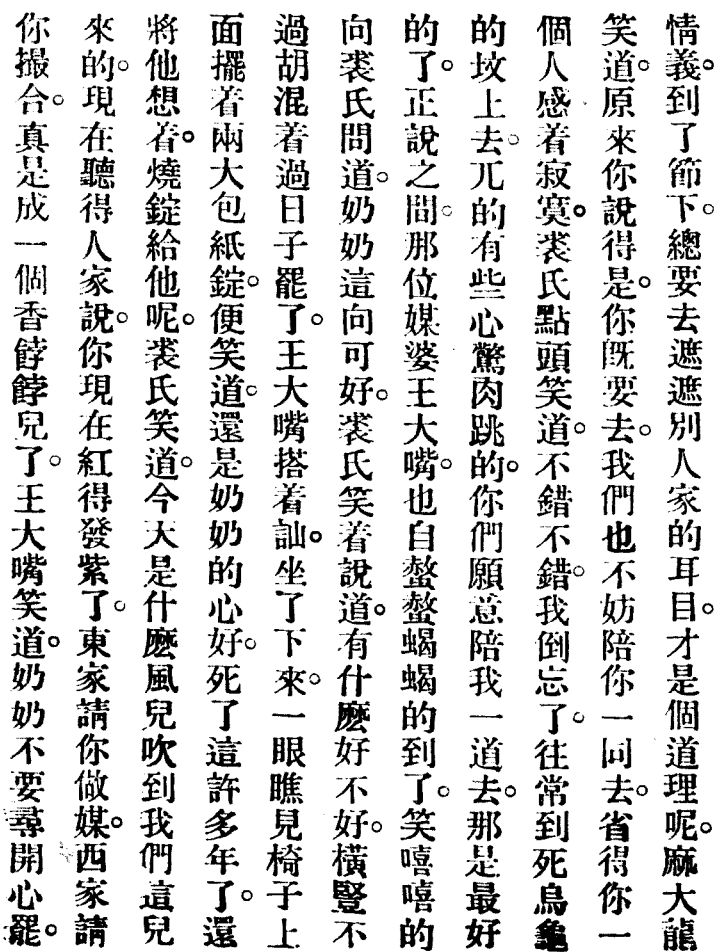 情義。到了節下。總要去遮遮別人家的耳目。才是個道理呢。麻大龍
笑道。原來你說得是。你旣要去。我們也不妨陪你一同去。省得你一
個人感着寂寞。裘氏點頭笑道。不錯不錯。我倒忘了。往常到死烏龜
的坟上去。兀的有些心驚肉跳的。你們願意陪我一道去。那是最好
的了。正說之間。那位媒婆王大嘴。也自螫螫蝎蝎的到了。笑嘻嘻的
向裘氏問道。奶奶這向可好。裘氏笑着說道。有什麽好不好。橫豎不
過胡混着過日子罷了。王大嘴搭着訕。坐了下來。一眼瞧見椅子上
面擺着兩大包紙錠。便笑道。還是奶奶的心好。死了這許多年了。還
將他想着。燒錠給他呢。裘氏笑道。今天是什麽風兒吹到我們這兒
來的。現在聽得人家說。你現在紅得發紫了。東家請你做媒。西家請
你撮合。眞是成一個香餑餑兒了。王大嘴笑道。奶奶不要尋開心罷。